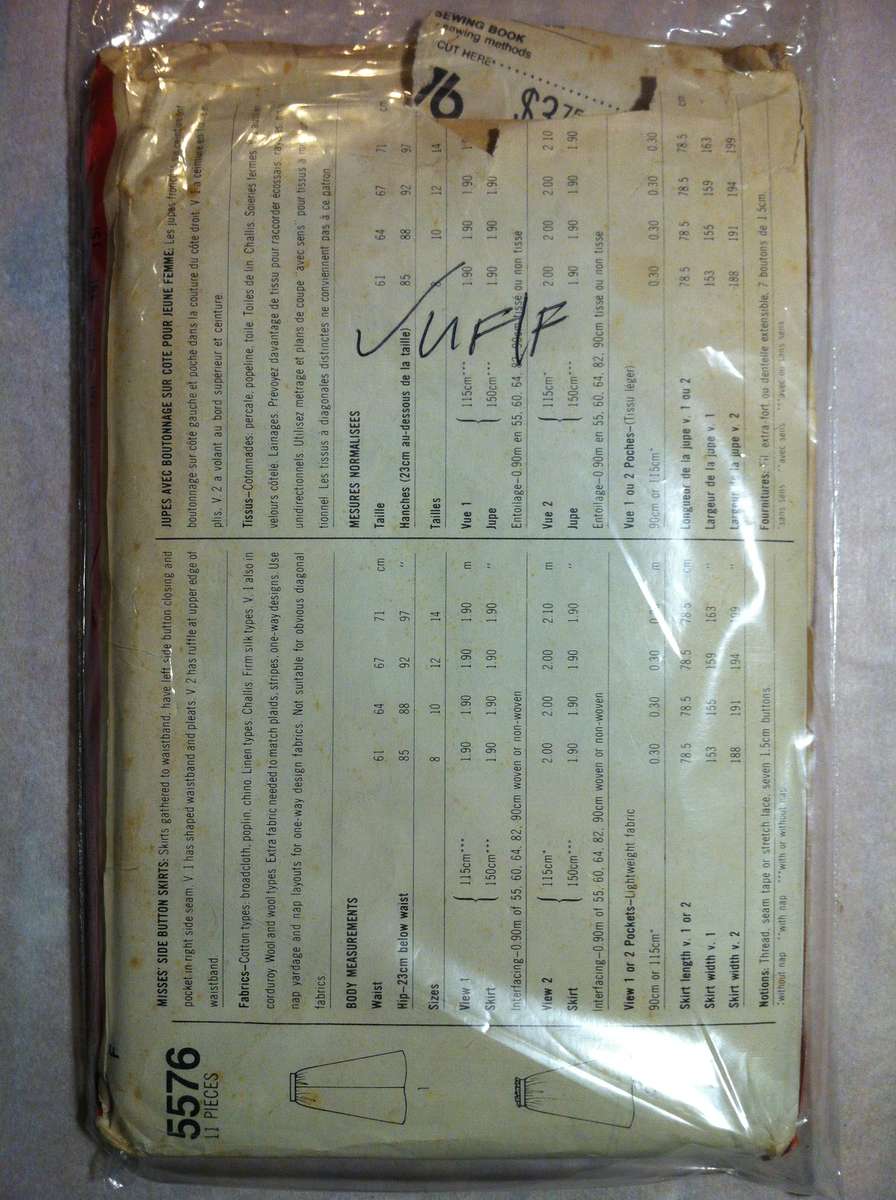 SEWING BOOK
sewing methods
CUT HERE
$3.75
5576
11 PIECES
1
MISSES' SIDE BUTTON SKIRTS: Skirts gathered to waistband, have left side button closing and
pocket in right side seam. V. 1 has shaped waistband and pleats. V. 2 has ruffle at upper edge of
waistband.
Fabrics—Cotton types: broadcloth, poplin, chino. Linen types. Challis. Firm silk types. V. 1 also in
corduroy. Wool and wool types. Extra fabric needed to match plaids, stripes, one-way designs. Use
nap yardage and nap layouts for one-way design fabrics. Not suitable for obvious diagonal
fabrics.
BODY MEASUREMENTS
Waist 61 64 67 71 cm
Hip—23cm below waist 85 88 92 97 "
Sizes 8 10 12 14
View 1 115cm*** 1.90 1.90 1.90 1.90 m
Skirt 150cm*** 1.90 1.90 1.90 1.90 "
Interfacing—0.90m of 55, 60, 64, 82, 90cm woven or non-woven
View 2 115cm* 2.00 2.00 2.00 2.10 m
Skirt 150cm*** 1.90 1.90 1.90 1.90 "
Interfacing—0.90m of 55, 60, 64, 82, 90cm woven or non-woven
View 1 or 2 Pockets—Lightweight fabric
90cm or 115cm* 0.30 0.30 0.30 m
Skirt length v. 1 or 2 78.5 78.5 78.5 78.5 cm
Skirt width v. 1 153 155 159 163 "
Skirt width v. 2 188 191 194 "
Notions: Thread, seam tape or stretch lace, seven 1.5cm buttons.
*without nap **with nap ***with or without nap
JUPES AVEC BOUTONNAGE SUR COTE POUR JEUNE FEMME: Les jupes
boutonnage sur côté gauche et poche dans la couture du côté droit. V. 1 a ceinture
plis. V. 2 a volant au bord supérieur et ceinture.
Tissus—Cotonnades: percale, popeline, toile. Toiles de lin. Challis. Soieries fermes.
velours côtelé. Lainages. Prévoyez davantage de tissu pour raccorder écossais,
unidirectionnels. Utilisez métrage et plans de coupe "avec sens" pour tissus à
tionnel. Les tissus à diagonales distinctes ne conviennent pas à ce patron.
MESURES NORMALISEES
Taille 61 64 67 71 cm
Hanches (23cm au-dessous de la taille) 85 88 92 97
Tailles 10 12 14
Vue 1 115cm*** 1.90 1.90 1.90
Jupe 150cm*** 1.90 1.90 1.90
Entoilage—0.90m en 55, 60, 64, 82, 90cm tisse ou non tisse
Vue 2 115cm* 2.00 2.00 2.00 2.10
Jupe 150cm*** 1.90 1.90 1.90 1.90
Entoilage—0.90m en 55, 60, 64, 82, 90cm tisse ou non tisse
Vue 1 ou 2 Poches—(Tissu léger)
90cm or 115cm* 0.30 0.30 0.30 0.30
Longueur de la jupe v. 1 ou 2 78.5 78.5 78.5 78.5 cm
Largeur de la jupe v. 1 153 155 159 163
Largeur de la jupe v. 2 188 191 194 199
Fournitures: Fil, extra-fort ou dentelle extensible, 7 boutons de 1.5cm.
*sans sens **avec sens ***avec ou sans sens